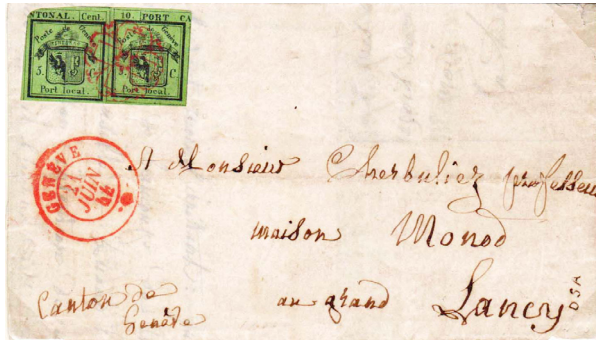 NTONAL. Cent. 10. PORT CA
Poste de Genève Poste de Genève
5. C. 5. C
Port local. Port local.
GENÈVE
21
JUIN
44
A Monsieur Cherbuliez professeur
maison Monod
au grand Lancy
Canton de
Genève